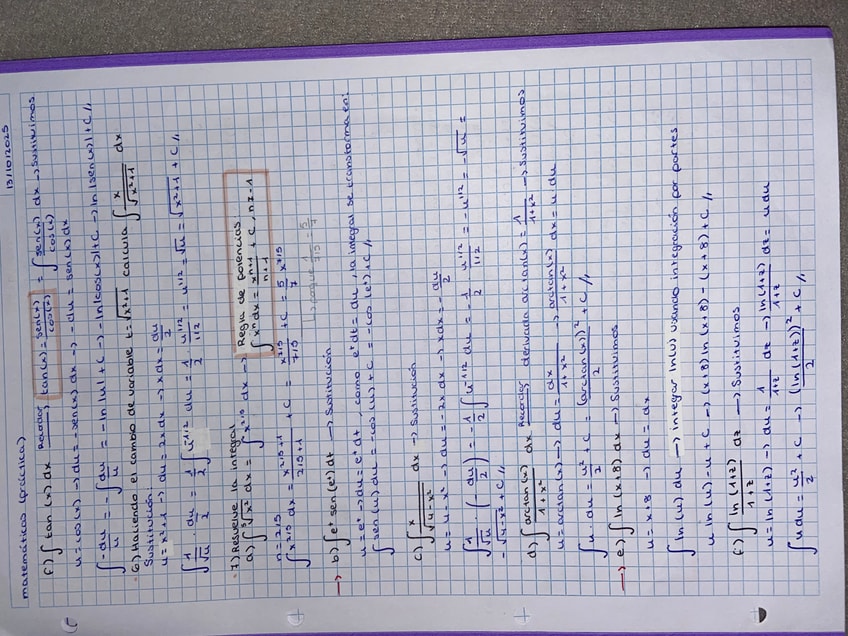 matemáticas (práctica) 13/10/2025
f) ∫ tan(x) dx Recordar tan(x) = sen(x)/cos(x) = ∫ sen(x)/cos(x) dx → Sustituimos
u = cos(x) → du = -sen(x) dx → -du = sen(x) dx
∫ -du/u = -∫ du/u = -ln|u| + C → -ln|cos(x)| + C → ln|sen(x)| + C //
6) Haciendo el cambio de variable t = √x²+1 calcula ∫ x/√x²+1 dx
Sustitución:
u = x²+1 → du = 2x dx → x dx = du/2
∫ 1/√u · du/2 = 1/2 ∫ u^-1/2 du = 1/2 u^1/2/1/2 = u^1/2 = √u = √x²+1 + C //
7) Resuelve la integral
a) ∫ ⁵√x² dx = ∫ x^2/5 dx → Regla de potencias:
∫ xⁿ dx = x^n+1/n+1 + C, n≠-1
n = 2/5
∫ x^2/5 dx = x^2/5+1/2/5+1 + C = x^7/5/7/5 + C = 5/7 x^7/5
→ porque 1/7/5 = 5/7
→ b) ∫ eᵗ sen(eᵗ) dt → Sustitución
u = eᵗ → du = eᵗ dt, como eᵗ dt = du, la integral se transforma en:
∫ sen(u) du = -cos(u) + C = -cos(eᵗ) + C //
c) ∫ x/√4-x² dx → Sustitución
u = 4-x² → du = -2x dx → x dx = -du/2
∫ 1/√u · (-du/2) = -1/2 ∫ u^-1/2 du = -1/2 u^1/2/1/2 = -u^1/2 = -√u =
-√4-x² + C //
d) ∫ arctan(x)/1+x² dx Recordar derivada arctan(x) = 1/1+x² → Sustituimos
u = arctan(x) → du = dx/1+x² → arctan(x)/1+x² dx = u du
∫ u · du = u²/2 + C = (arctan(x))²/2 + C //
→ e) ∫ ln(x+8) dx → Sustituimos
u = x+8 → du = dx
∫ ln(u) du → integrar ln(u) usando integración por partes
u ln(u) - u + C → (x+8) ln(x+8) - (x+8) + C //
f) ∫ ln(1+z)/1+z dz → Sustituimos
u = ln(1+z) → du = 1/1+z dz → ln(1+z)/1+z dz = u du
∫ u du = u²/2 + C → (ln(1+z))²/2 + C //